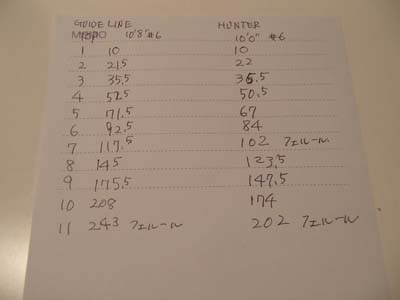 GUIDE LINE HUNTER
TOP 10'8" #6 10'0" #6
1 10 10
2 21.5 22
3 35.5 36.5
4 52.5 50.5
5 71.5 67
6 92.5 84
7 117.5 102 フェルール
8 145 123.5
9 175.5 147.5
10 208 174
11 243 フェルール 202 フェルール